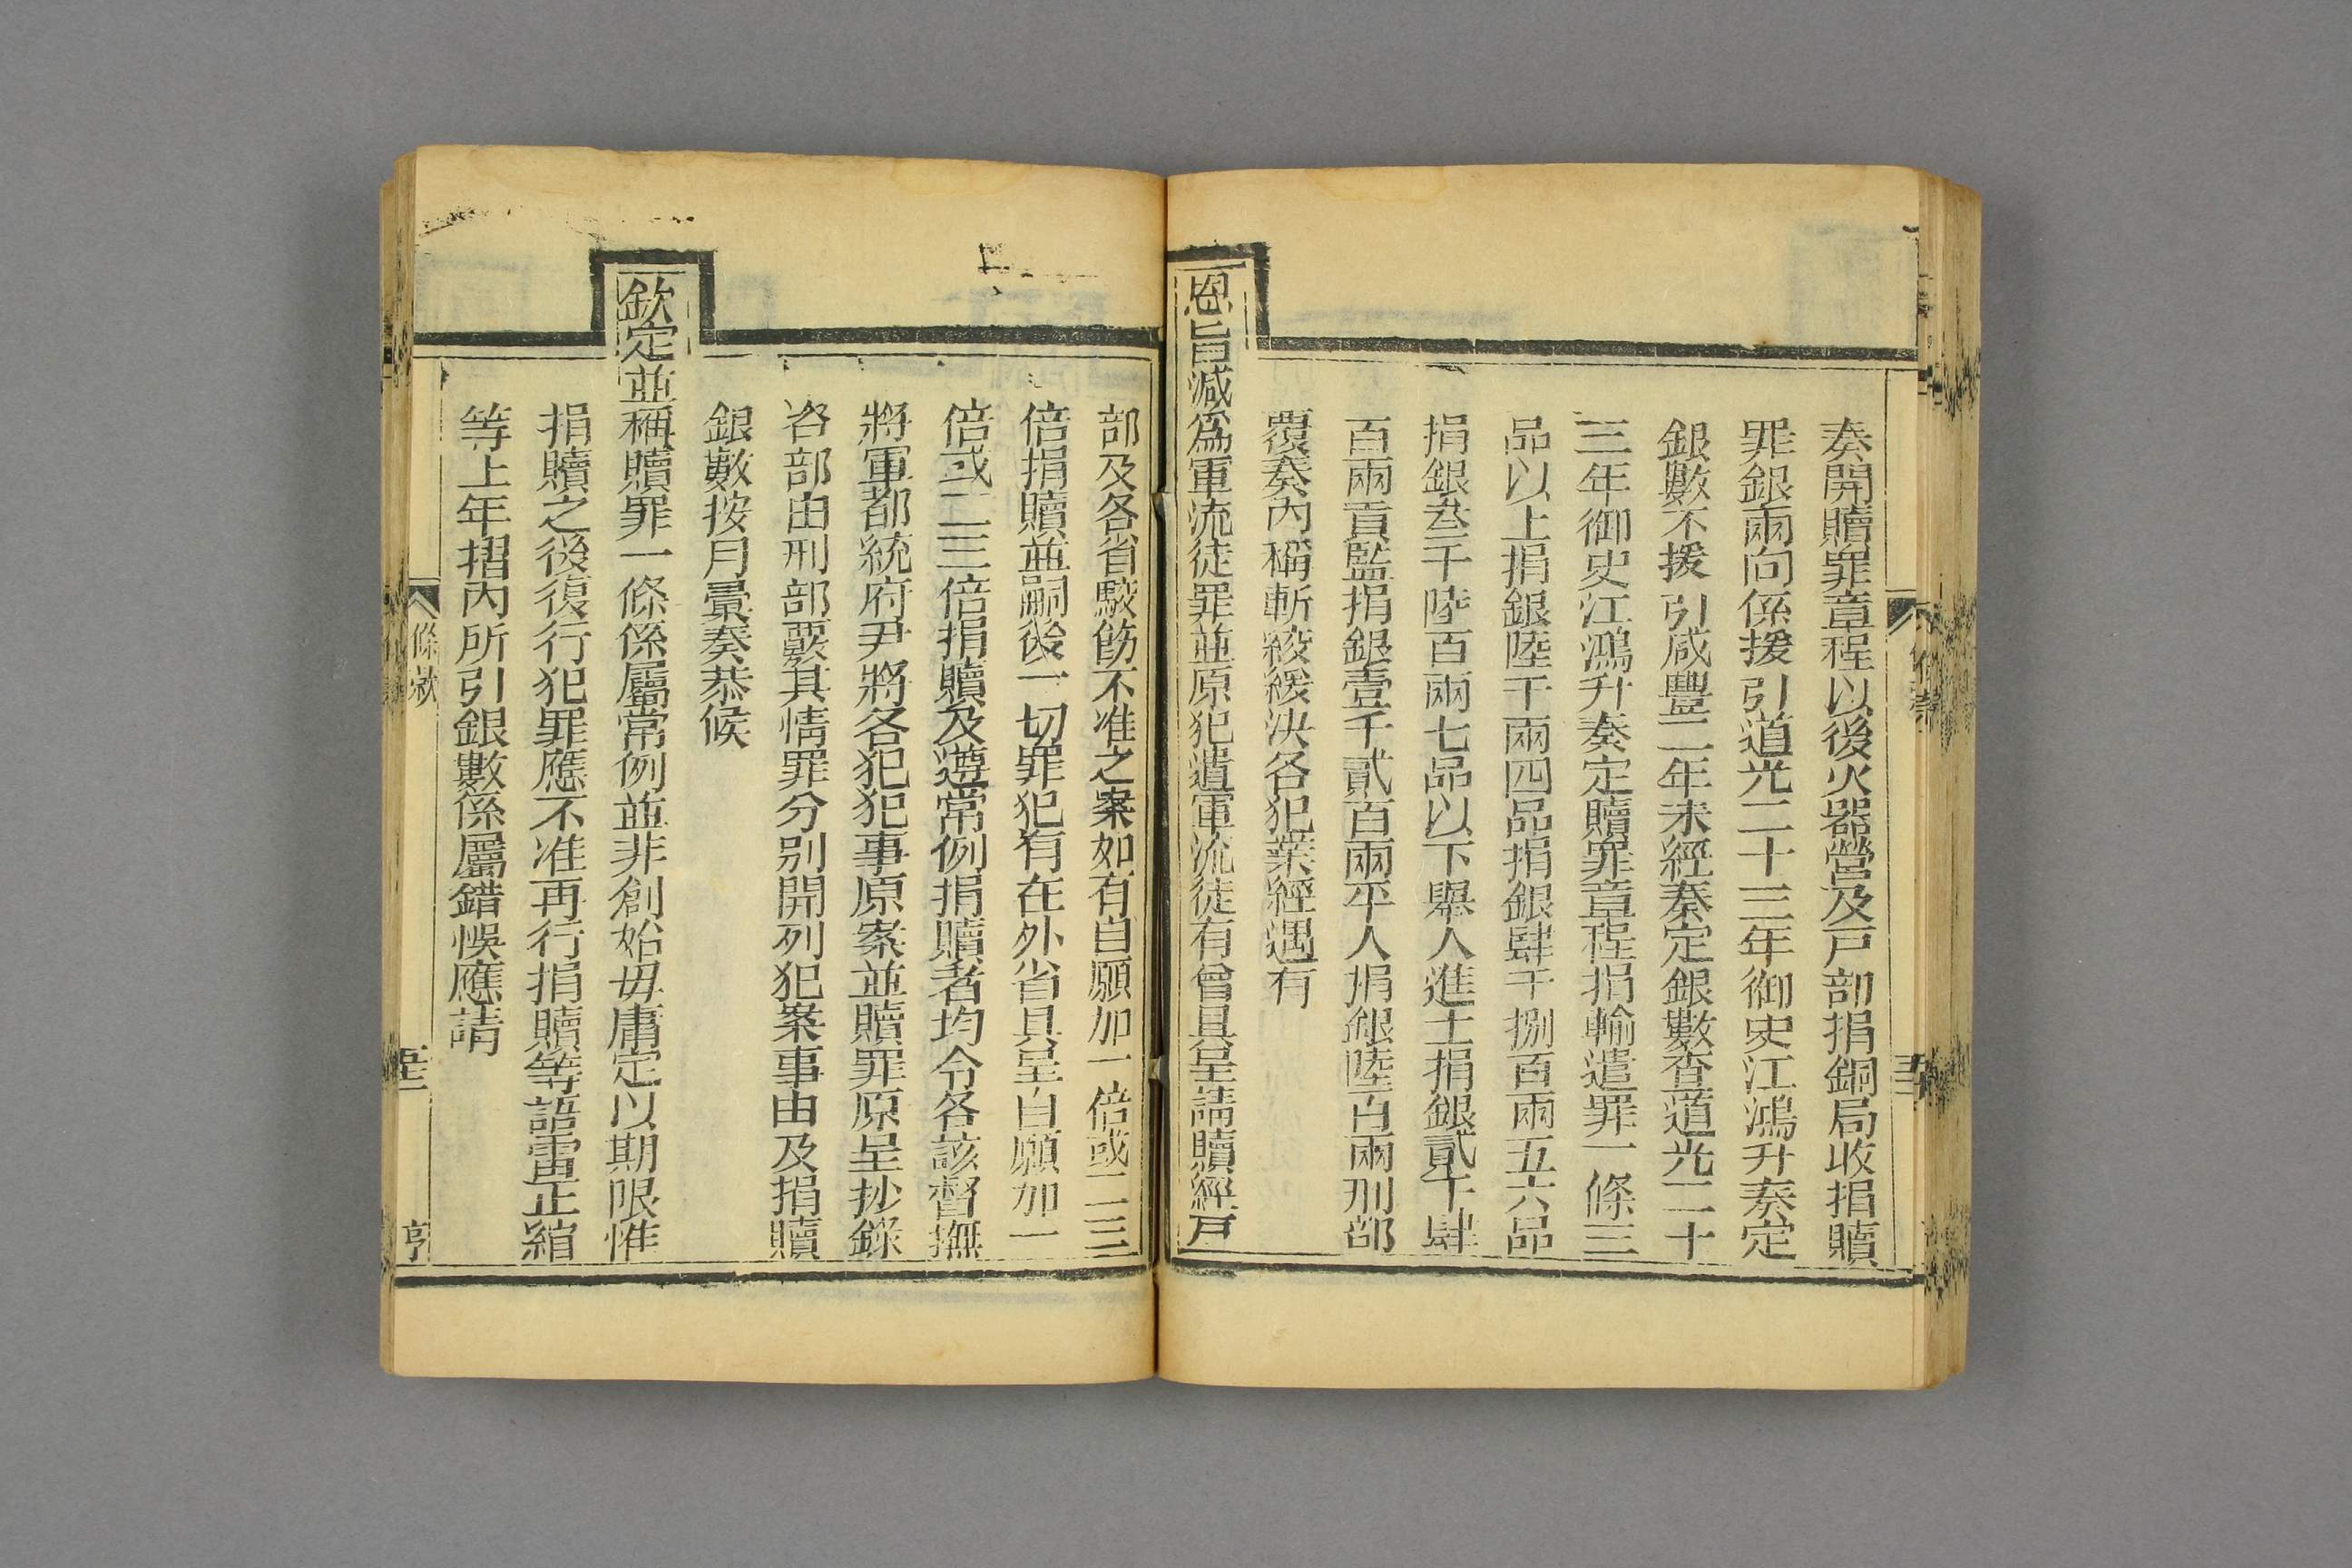 奏開贖罪章程以後火器營及戸部捐銅局收捐贖
罪銀兩向係援引道光二十三年御史江鴻升奏定
銀數不援引咸豐二年未經奏定銀數查道光二十
三年御史江鴻升奏定贖罪章程捐輸遣罪一條三
品以上捐銀陸千兩四品捐銀肆千捌百兩五六品
捐銀叁千陸百兩七品以下舉人進士捐銀貳千肆
百兩貢監捐銀壹千貳百兩平人捐銀陸百兩刑部
覆奏內稱斬絞緩決各犯業經遇有
恩旨減爲軍流徒罪並原犯遣軍流徒有曾具呈請贖經戸
部及各省駮飭不准之案如有自願加一倍或二三
倍捐贖並嗣後一切罪犯有在外省具呈自願加一
倍或二三倍捐贖及遵常例捐贖者均令各該督撫
將軍都統府尹將各犯犯事原案並贖罪原呈抄錄
咨部由刑部覈其情罪分别開列犯案事由及捐贖
銀數按月彙奏恭候
欽定並稱贖罪一條係屬常例並非創始毋庸定以期限惟
捐贖之後復行犯罪應不准再行捐贖等語雷正綰
等上年摺內所引銀數係屬錯悞應請
條款
亨